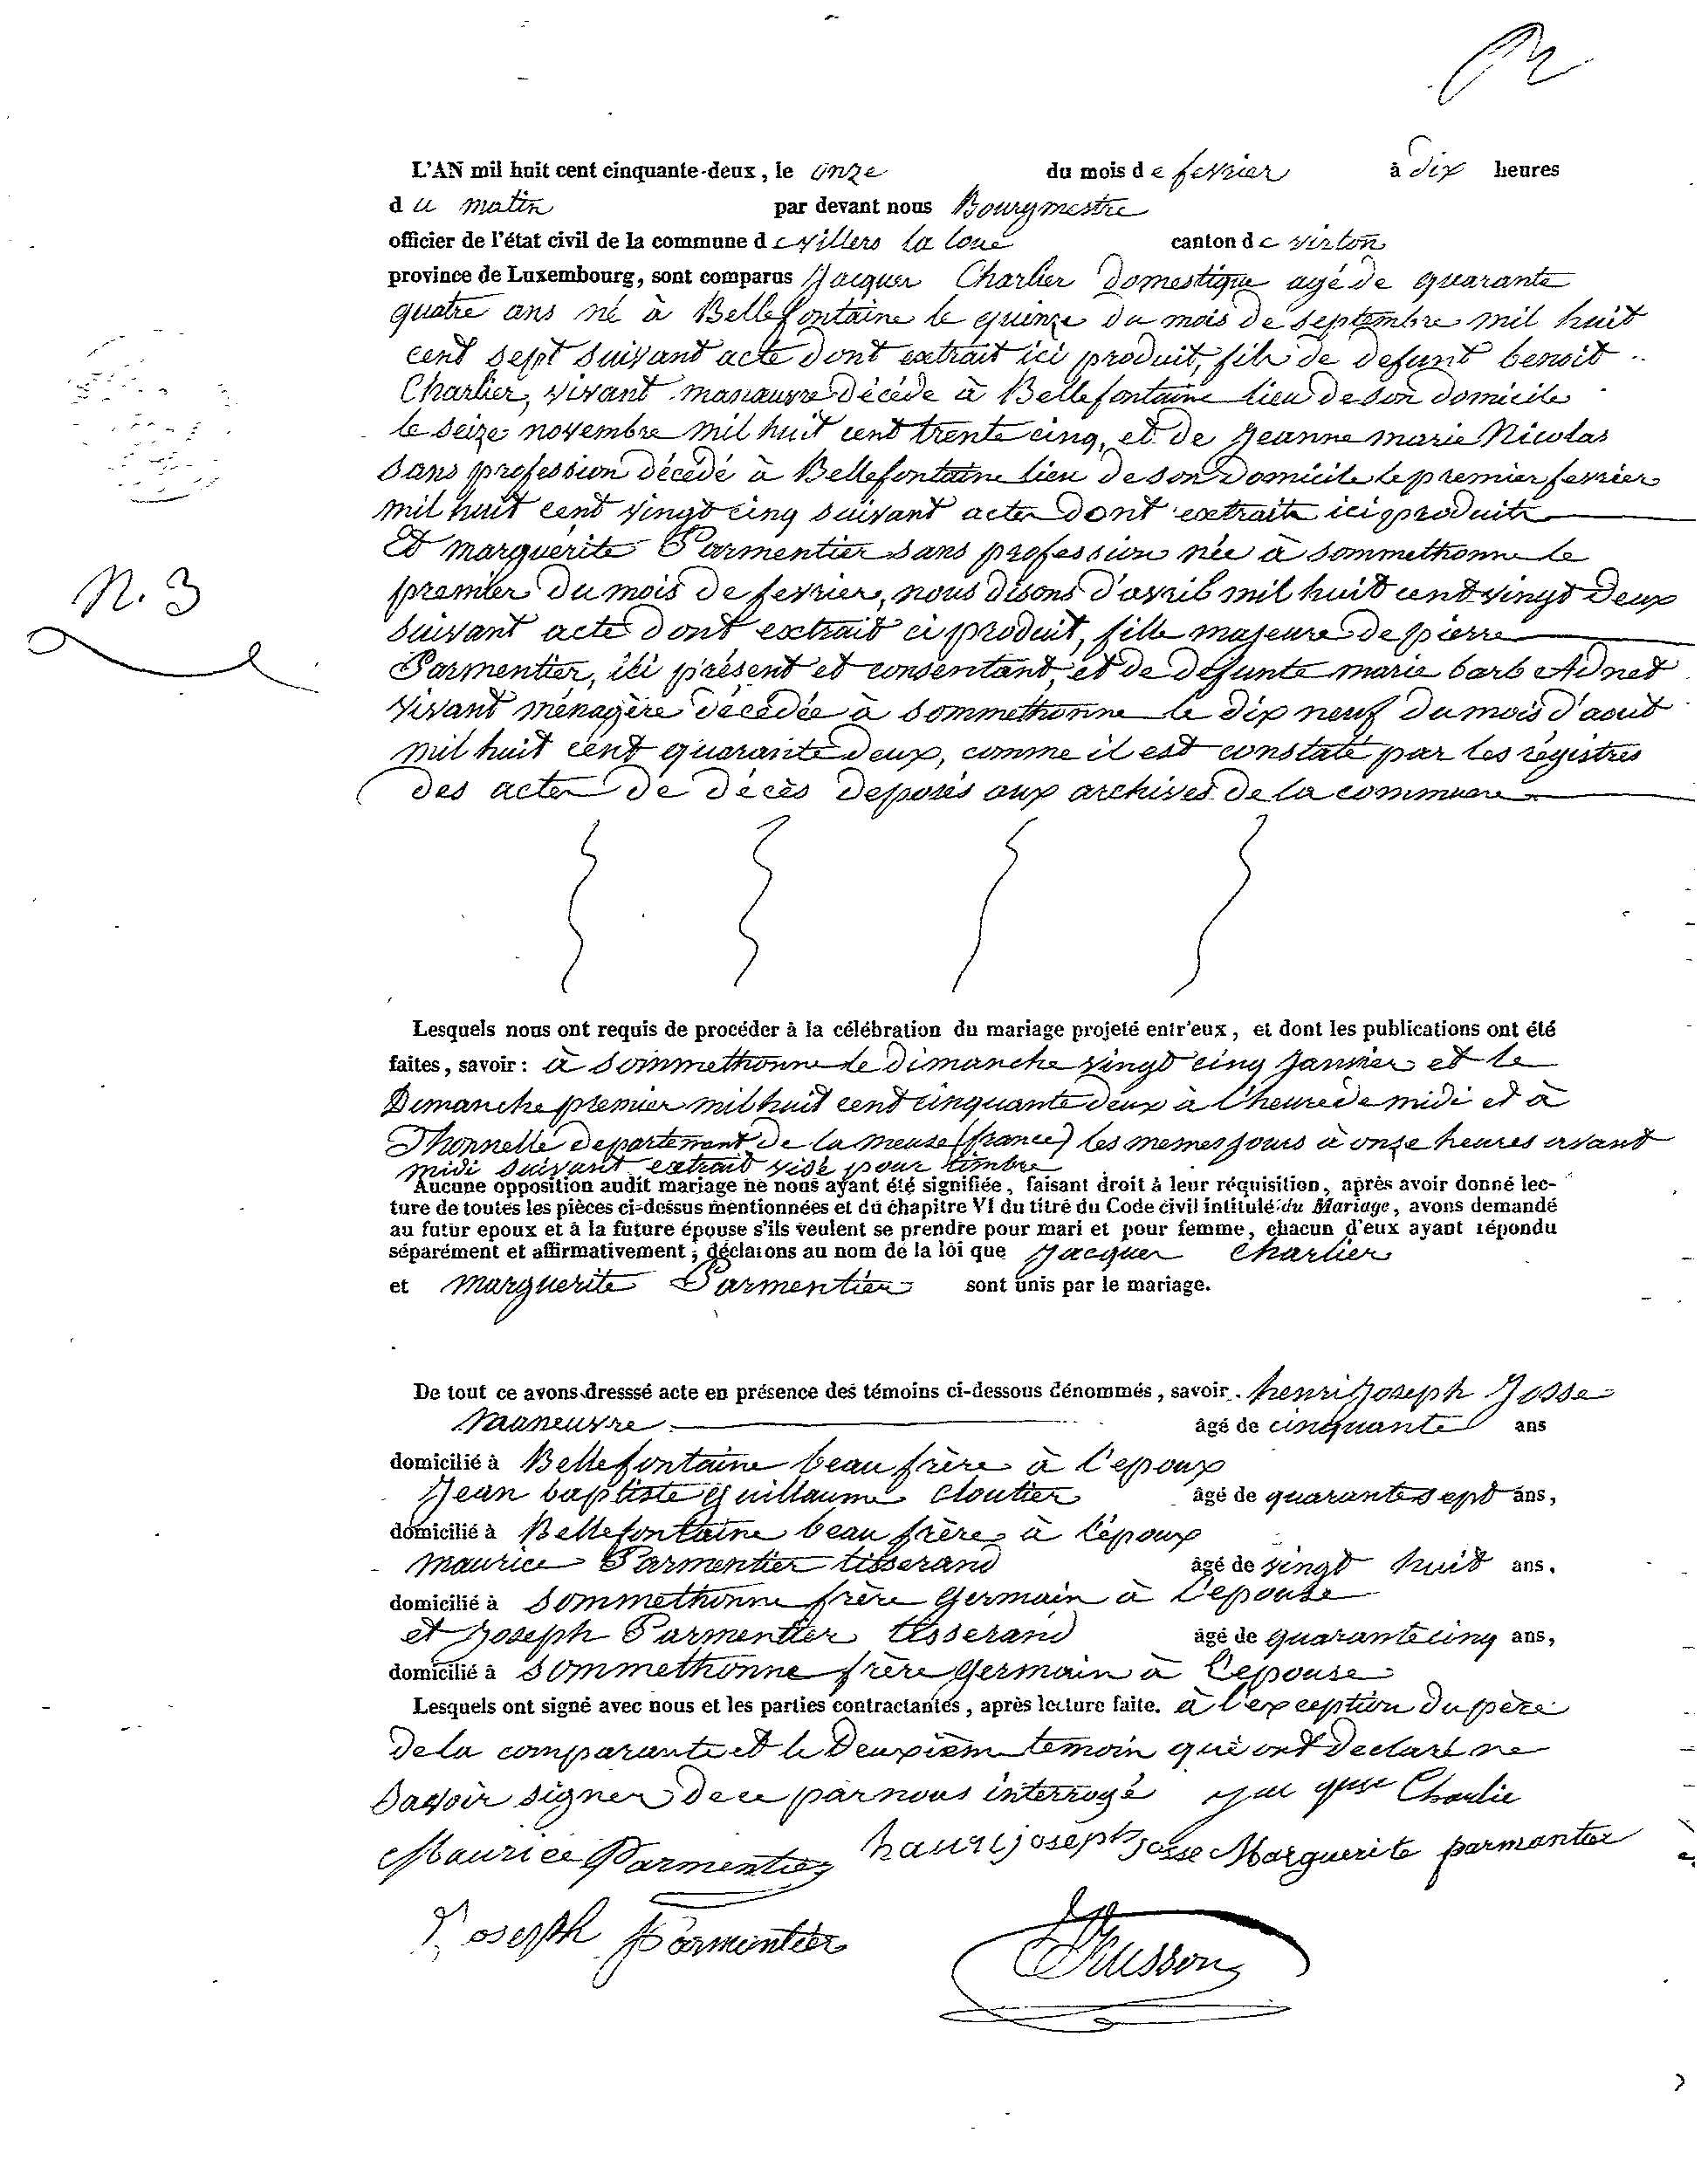 L'AN mil huit cent cinquante-deux, le onze du mois de fevrier à dix heures
du matin par devant nous Bourgmestre
officier de l'état civil de la commune de villers la loue canton de virton
province de Luxembourg, sont comparus Jacques Charlier domestique agé de quarante
quatre ans né à Bellefontaine le quinze du mois de septembre mil huit
cent sept suivant acte dont extrait ici produit, fils de defunt benoit
Charlier, vivant manœuvre décédé à Bellefontaine lieu de son domicile
le seize novembre mil huit cent trente cinq, et de Jeanne marie Nicolas
sans profession décédé à Bellefontaine lieu de son domicile le premier fevrier
mil huit cent vingt cinq suivant actes dont extraits ici produits
Et marguérite Parmentier sans profession née à sommethonne le
N. 3
premier du mois de fevrier, nous disons d'avril mil huit cent vingt deux
suivant acte dont extrait ci produit, fille majeure de pierre
Parmentier, ici présent et consentant, et de defunte marie barb Adnet
vivant ménagère décédée à sommethonne le dix neuf du mois d'aout
mil huit cent quarante deux, comme il est constaté par les régistres
des actes de décès deposés aux archives de la commune
Lesquels nous ont requis de procéder à la célébration du mariage projeté entr'eux, et dont les publications ont été
faites, savoir : à sommethonne le dimanche vingt cinq Janvier et le
Dimanche premier mil huit cent cinquante deux à l'heure de midi et à
Thonnelle departement de la meuse (france) les memes jours à onze heures avant
midi suivant extrait visé pour timbre
Aucune opposition audit mariage ne nous ayant été signifiée, faisant droit à leur réquisition, après avoir donné lec-
ture de toutes les pièces ci-dessus mentionnées et du chapitre VI du titre du Code civil intitulé du Mariage, avons demandé
au futur epoux et à la future épouse s'ils veulent se prendre pour mari et pour femme, chacun d'eux ayant répondu
séparément et affirmativement ; déclarons au nom de la loi que Jacques Charlier
et marguerite Parmentier sont unis par le mariage.
De tout ce avons dresssé acte en présence des témoins ci-dessous dénommés, savoir. henri Joseph Josse
maneuvre âgé de cinquante ans
domicilié à Bellefontaine beau frère à l'epoux
Jean baptiste Guillaume cloutier âgé de quarante sept ans,
domicilié à Bellefontaine beau frère à l'époux
maurice Parmentier tisserand âgé de vingt huit ans.
domicilié à sommethonne frère germain à l'epouse
et Joseph Parmentier tisserand âgé de quarante cinq ans,
domicilié à sommethonne frère germain à l'epouse
Lesquels ont signé avec nous et les parties contractantes, après lecture faite. à l'exception du père
de la comparante et le Deuxième temoin qui ont declaré ne
savoir signer de ce par nous interrogé Charlie
Maurice Parmentier haurijoseph josse Marguerite parmantier
Joseph Parmentier Husson